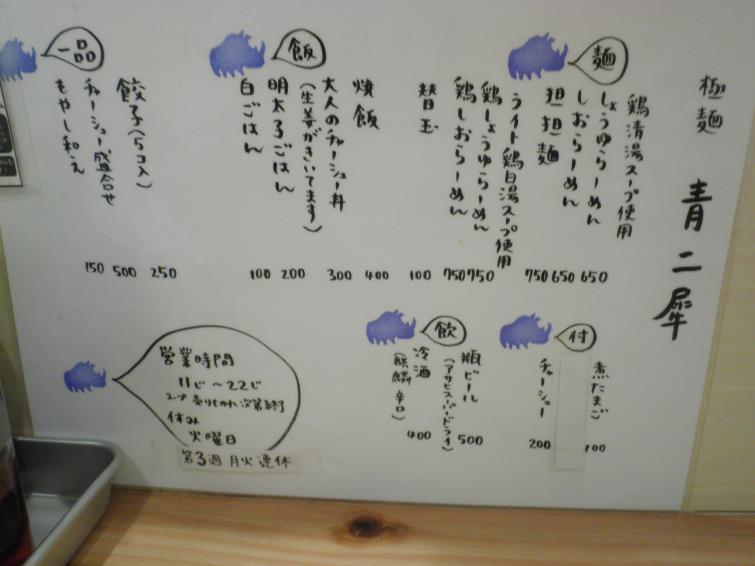 極麺 青二犀
麺
鶏清湯スープ使用
しょうゆらーめん 650
しおらーめん 650
担担麺 750
ライト鶏白湯スープ使用
鶏しょうゆらーめん 750
鶏しおらーめん 750
替玉 100
飯
焼飯 400
大人のチャーシュー丼 300
(生姜がきいてます)
明太子ごはん 200
白ごはん 100
一品
餃子(5コ入) 250
チャーシュー盛合せ 500
もやし和え 150
付
煮たまご 100
チャーシュー 200
飲
瓶ビール 500
(アサヒスーパードライ)
冷酒 400
(麒麟辛口)
営業時間
11じ〜22じ
スープ売りきれ次第終了
休み
火曜日
第3週月火連休